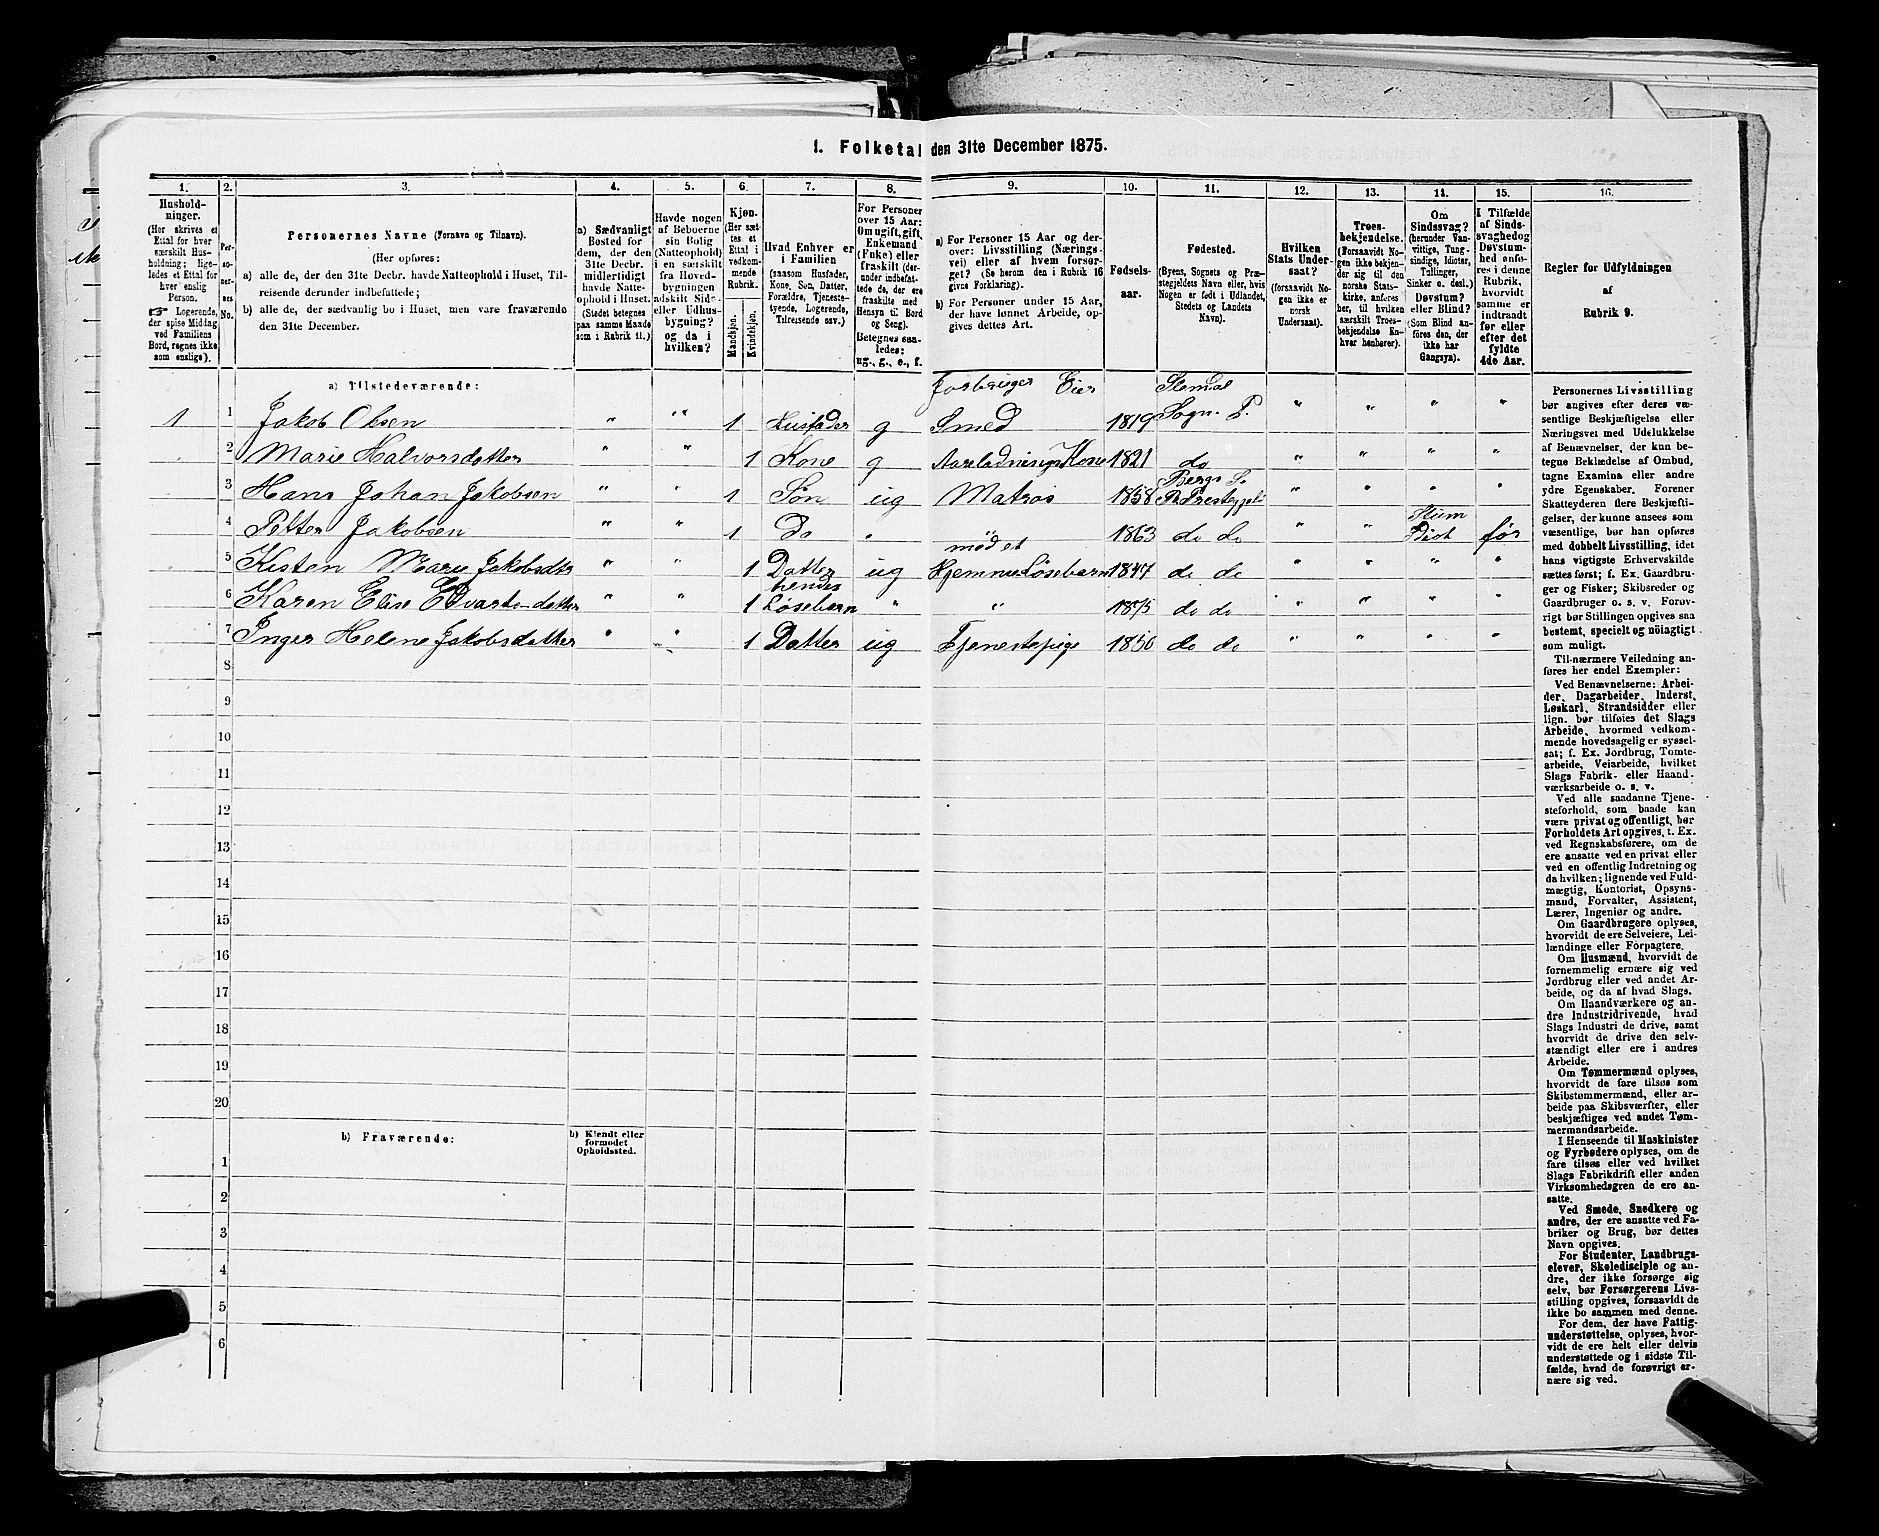 1. Folketal den 31te December 1875.
1. 2. 3. 4. 5. 6. 7. 8. 9. 10. 11. 12. 13. 14. 15. 16.
Hushold-
ninger.
(Her skrives et
Ettal for hver
særskilt Hus-
holdning; lige-
ledes et Ettal for
hver enslig
Person.
☞ Logerende,
der spise Middag
ved Familiens
Bord, regnes ikke
som enslige).
Per-
so-
ner-
nes
No.
Personernes Navne (Fornavn og Tilnavn).
(Her opføres:
a) alle de, der den 31te Decbr. havde Natteophold i Huset, Til-
reisende derunder indbefattede;
b) alle de, der sædvanlig bo i Huset, men vare fraværende
den 31te December.
a) Sædvanligt
Bosted for
dem, der den
31te Decbr.
midlertidigt
havde Natte-
ophold i Huset.
(Stedet betegnes
paa samme Maade
som i Rubrik 11.)
Havde nogen
af Beboerne
sin Bolig
(Natteophold)
i en særskilt
fra Hoved-
bygningen
adskilt Side-
eller Udhus-
bygning?
og da i
hvilken?
Kjøn.
(Her sæt-
tes et
Ettal i
vedkom-
mende
Rubrik.
Mandkjøn.
Kvindekjøn.
Hvad Enhver er
i Familien
(saasom Husfader,
Kone, Søn, Datter,
Forældre, Tjeneste-
tyende, Logerende,
Tilreisende osv.)
For Personer
over 15 Aar:
Om ugift, gift,
Enkemand
(Enke) eller
fraskilt (der-
under indbefat-
tede de, der ere
fraskilte med
Hensyn til Bord
og Seng).
Betegnes saa-
ledes:
ug., g., e., f.
a) For Personer 15 Aar og der-
over: Livsstilling (Nærings-
vei) eller af hvem forsør-
get? (Se herom den i Rubrik 16
givne Forklaring).
b) For Personer under 15 Aar,
der have lønnet Arbeide, op-
gives dettes Art.
Fødsels-
aar.
Fødested.
(Byens, Sognets og Præ-
stegjeldets Navn eller, hvis
Nogen er født i Udlandet,
Stedets og Landets
Navn).
Hvilken
Stats Under-
saat?
(forsaavidt No-
gen ikke er
norsk
Undersaat).
Troes-
bekjendelse.
(Forsaavidt No-
gen ikke bekjen-
der sig til den
norske Stats-
kirke, anføres
her, til hvilken
særskilt Troes-
bekjendelse En-
hver henhører).
Om
Sindssvag?
(herunder Van-
vittige, Tung-
sindige, Idioter,
Tullinger,
Sinker o. desl.)
Døvstum?
eller Blind?
(Som Blind an-
føres den, der
ikke har
Gangsyn).
I Tilfælde
af Sinds-
svaghed og
Døvstum-
hed anfø-
res i denne
Rubrik,
hvorvidt
samme er
indtraadt
før eller
efter det
fyldte
4de Aar.
Regler for Udfyldningen
af
Rubrik 9.
a) Tilstedeværende:
1 1 Jakob Olsen " " 1 Husfader g Jordbruger Eier Smed 1819 Sogn. P. " " " "
2 Marie Halvorsdatter " " 1 Kone g Kone 1821 do " " " "
3 Hans Johan Jakobsen " " 1 Søn ug Matros 1858 Bergs S. " " " "
4 Petter Jakobsen " " 1 Do " 1863 do do " " Idiot før
5 Kisten Marie Jakobsdtr " " 1 Datter ug Hjemme 1847 do do " " " "
6 Karen Elise Edvartsdatter " " 1 hendes Løsebarn " " 1875 do do " " " "
7 Inger Helene Jakobsdatter " " 1 Datter ug Tjenestepige 1850 do do " " " "
8
9
10
11
12
13
14
15
16
17
18
19
20
b) Fraværende:
b) Kjendt eller
formodet
Opholdssted.
1
2
3
4
5
6
Personernes Livsstilling
bør angives efter deres væ-
sentlige Beskjæftigelse eller
Næringsvei med Udelukkelse
af Benævnelser, der kun be-
tegne Beklædelse af Ombud,
tagne Examina eller andre
ydre Egenskaber. Forener
Skatteyderen flere Beskjæfti-
gelser, der kunne ansees som
væsentlige, bør han opføres
med dobbelt Livsstilling, idet
hans vigtigste Erhvervskilde
sættes først; f. Ex. Gaardbru-
ger og Fisker; Skibsreder og
Gaardbruger o. s. v. Forøv-
rigt bør Stillingen opgives saa
bestemt, specielt og nöiagtigt
som muligt.
Til nærmere Veiledning an-
føres her endel Exempler:
Ved Benævnelserne: Arbei-
der, Dagarbeider, Inderst,
Løskarl, Strandsidder eller
lign. bør tilføies det Slags
Arbeide, hvormed vedkom-
mende hovedsagelig er syssel-
sat; f. Ex. Jordbrug, Tomte-
arbeide, Veiarbeide, hvilket
Slags Fabrik- eller Haand-
værksarbeide o. s. v.
Ved alle saadanne Tjene-
steforhold, som baade kan
være privat og offentligt, bør
Forholdets Art opgives, t. Ex.
ved Regnskabsførere, om de
ere ansatte ved en privat eller
ved en offentlig Indretning og
da hvilken; lignende ved Fuld-
mægtig, Kontorist, Opsyns-
mand, Forvalter, Assistent,
Lærer, Ingeniør og andre.
Om Gaardbrugere oplyses,
hvorvidt de ere Selveiere, Lei-
lændinge eller Forpagtere.
Om Husmænd, hvorvidt de
fornemmelig ernære sig ved
Jordbrug eller ved andet Ar-
beide, og da af hvad Slags.
Om Haandværkere og an-
dre Industridrivende, hvad
Slags Industri de drive, samt
hvorvidt de drive den selv-
stændigt eller ere i andres
Arbeide.
Om Tømmermænd oplyses,
hvorvidt de fare tilsøs som
Skibstømmermænd, eller ar-
beide paa Skibsværfter, eller
beskjæftiges ved andet Tøm-
mermandsarbeide.
I Henseende til Maskinister
og Fyrbødere oplyses, om de
fare tilsøs eller ved hvilket
Slags Fabrikdrift eller anden
Virksomhedsgren de ere an-
satte.
Ved Smede, Snedkere og
andre, der ere ansatte ved Fa-
briker og Brug, bør dettes
Navn opgives.
For Studenter, Landbrugs-
elever, Skoledisciple og an-
dre, der ikke forsørge sig
selv, bør Forsørgerens Livs-
stilling opgives, forsaavidt de
ikke bo sammen med denne.
For dem, der have Fattig-
understøttelse, oplyses, hvor-
vidt de ere helt eller delvis
understøttede og i sidste Til-
fælde, hvad de forøvrigt er-
nære sig ved.